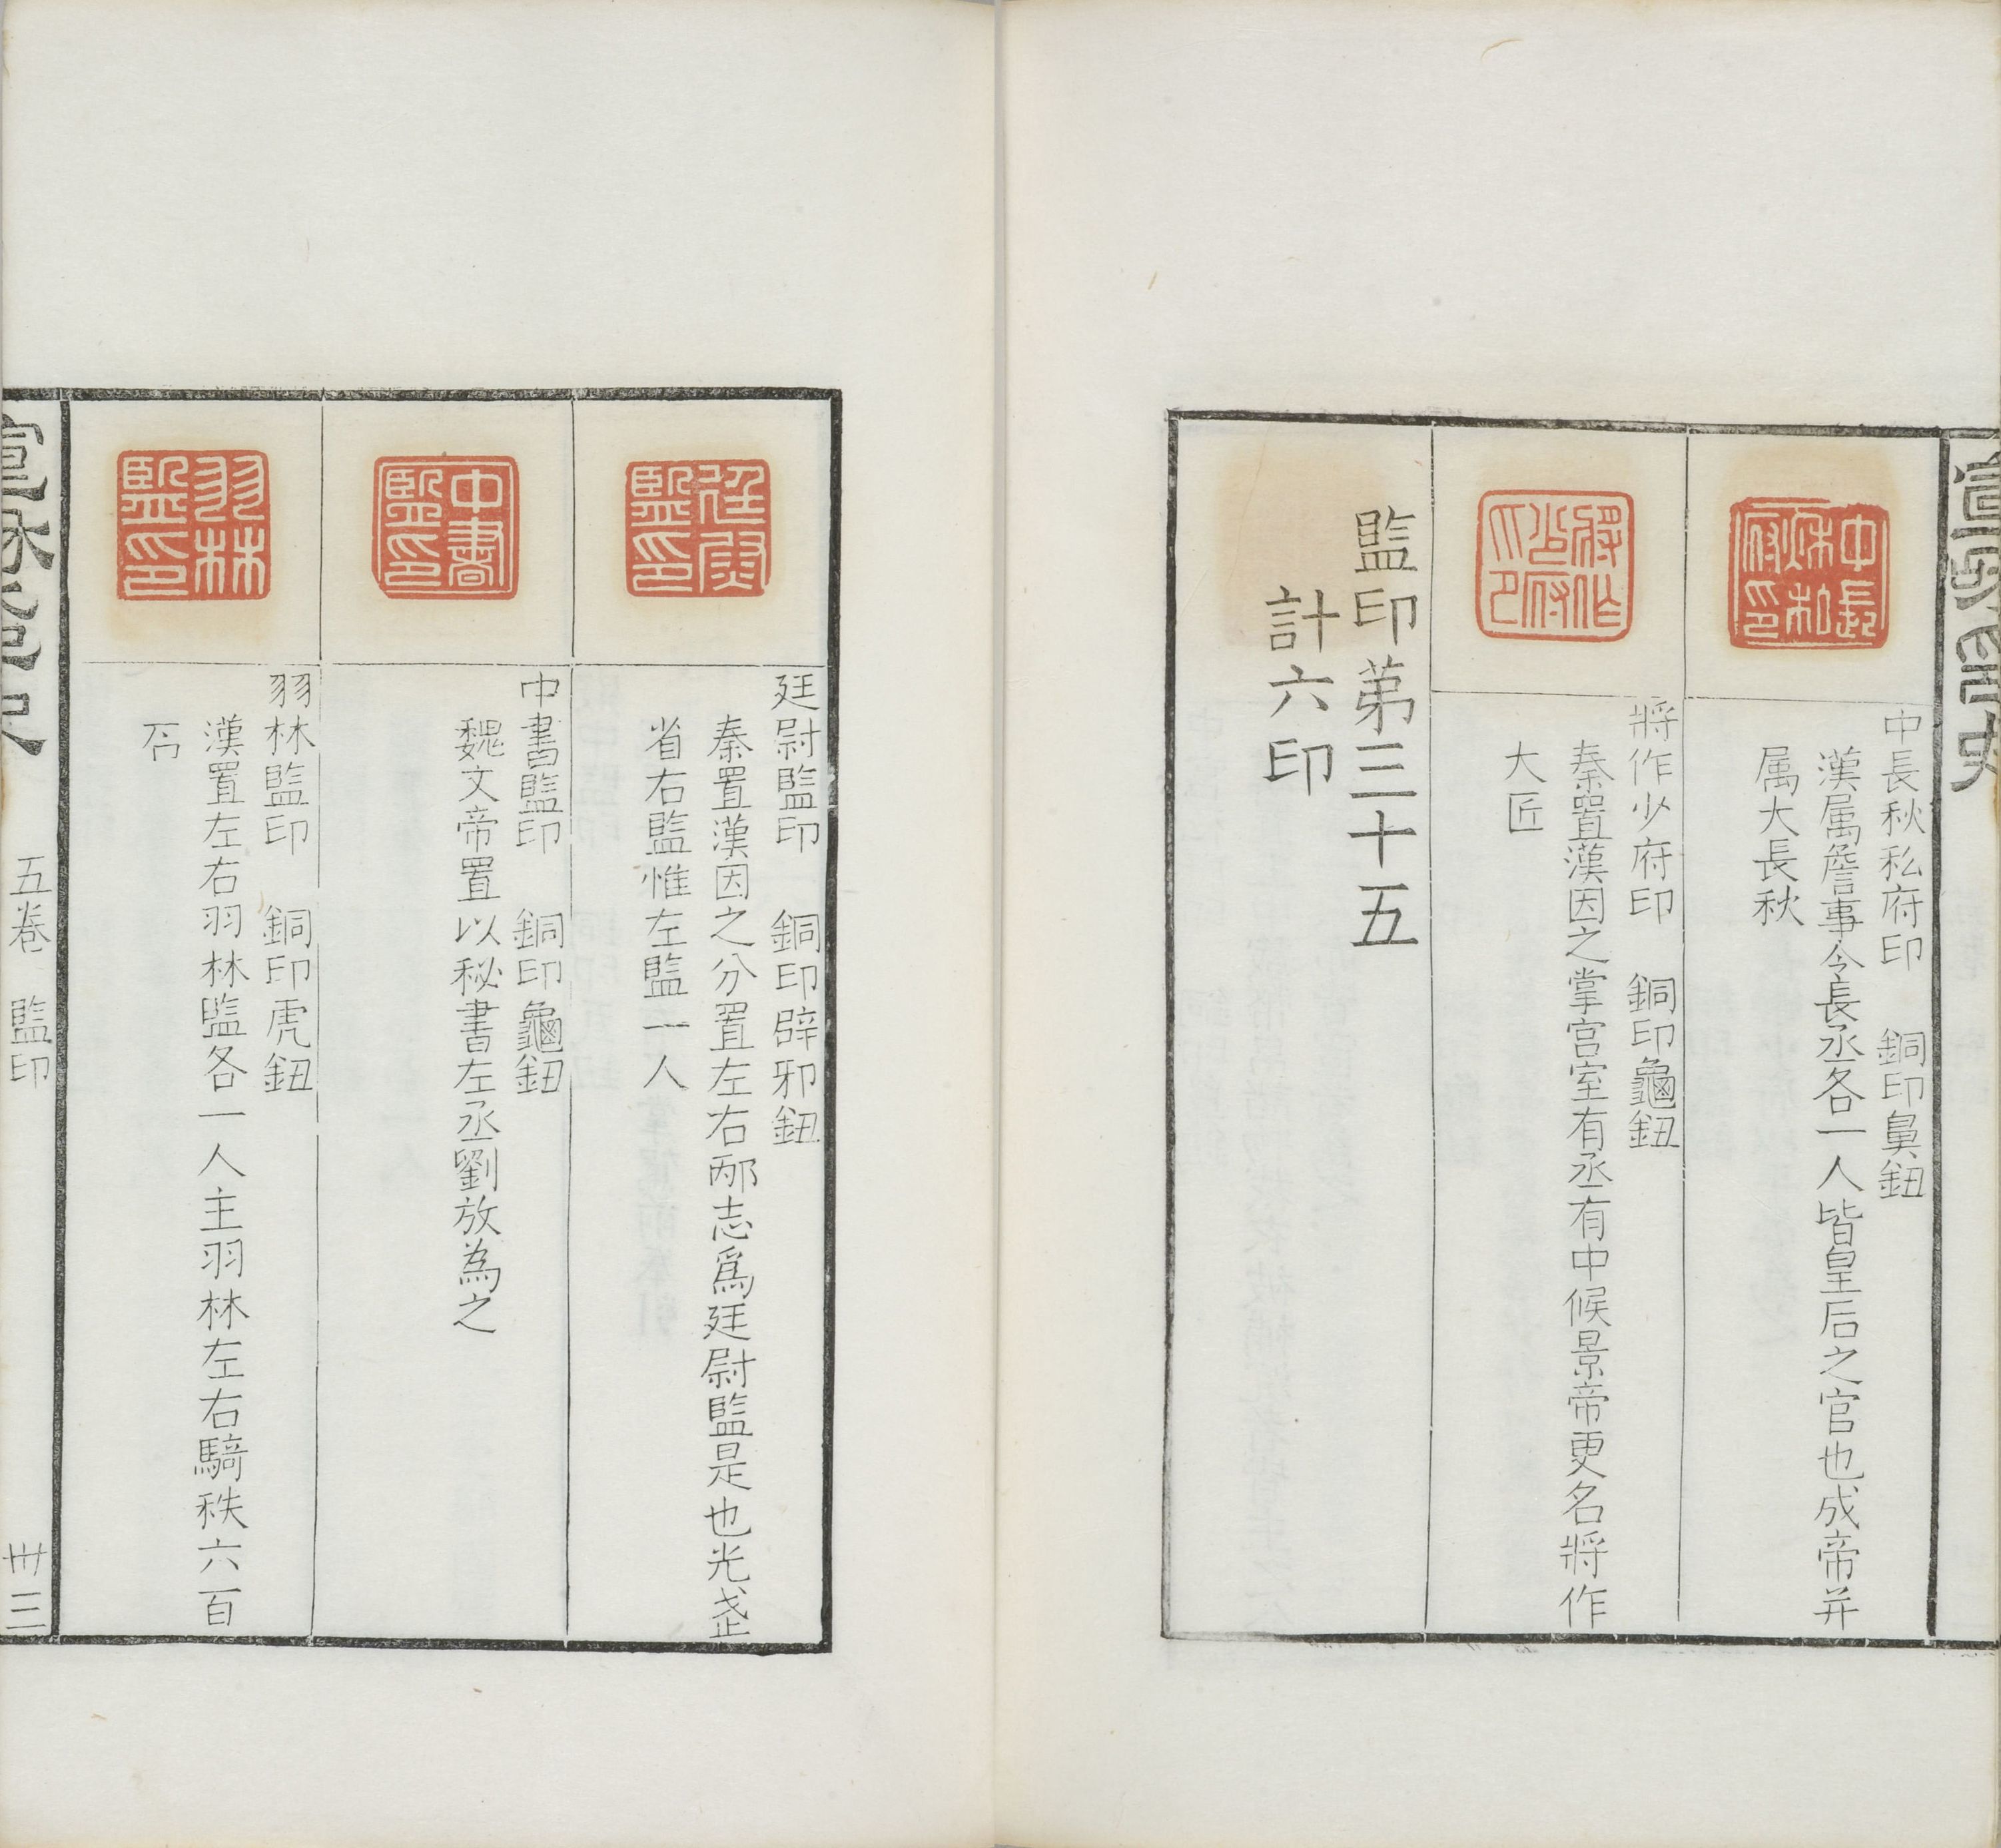 宣和印史
中長秋私府印
中長秋私府印　銅印鼻鈕
漢属詹事令長丞各一人皆皇后之官也成帝并
属大長秋
將作少府印
將作少府印　銅印龜鈕
秦置漢因之掌宫室有丞有中候景帝更名將作
大匠
監印苐三十五
計六印
廷尉監印
廷尉監印　銅印辟邪鈕
秦置漢因之分置左右邴志爲廷尉監是也光武
省右監惟左監一人
中書監印
中書監印　銅印龜鈕
魏文帝置以秘書左丞劉放為之
羽林監印
羽林監印　銅印虎鈕
漢置左右羽林監各一人主羽林左右騎秩六百
石
宣和印史
五卷　監印
卅三